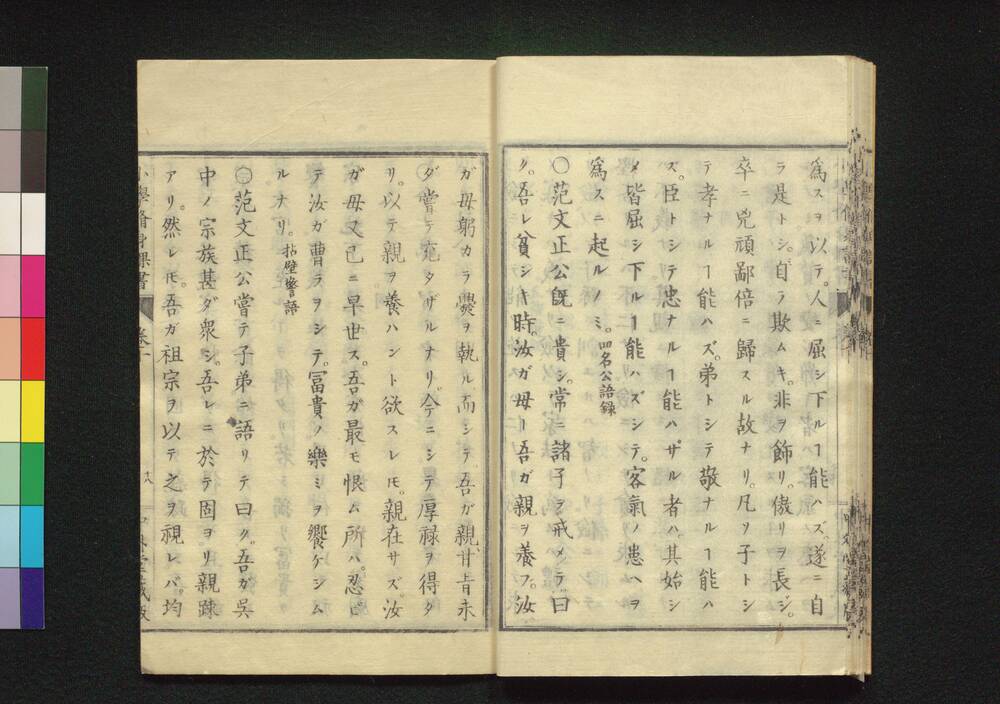 爲スヲ以テ。人ニ屈シ下ルヿ能ハズ。遂ニ自
ラ是トシ。自ラ欺ムキ。非ヲ飾リ。傲リヲ長ジ。
卒ニ兇頑鄙倍ニ歸スル故ナリ。凡ソ子トシ
テ孝ナルヿ能ハズ。弟トシテ敬ナルヿ能ハ
ズ。臣トシテ忠ナルヿ能ハザル者ハ。其始シ
メ皆屈シ下ルヿ能ハズシテ。客氣ノ患ヘヲ
爲スニ起ルノミ。四名公語録
〇范文正公既ニ貴シ。常ニ諸子ヲ戒メテ曰
ク。吾レ貧シキ時。汝ガ母ー吾ガ親ヲ養フ。汝
ガ母躬カラ爨ヲ執ル而シテ吾ガ親甘旨未
ダ嘗テ充タザルナリ。今ニシテ厚禄ヲ得タ
リ。以テ親ヲ養ハント欲スレㇳモ。親在サズ。汝
ガ母又已ニ早世ス。吾ガ最モ恨ム所ハ。忍ビ
テ汝ガ曹ラヲシテ。冨貴ノ樂ミヲ饗ケシム
ルナリ。拈壁警語
〇范文正公嘗テ子弟ニ語リテ曰ク。吾ガ吳
中ノ宗族甚ダ衆シ。吾レニ於テ固ヨリ親疎
アリ。然レㇳモ。吾ガ祖宗ヲ以テ之ヲ視レバ。均
小學脩身課書 卷十